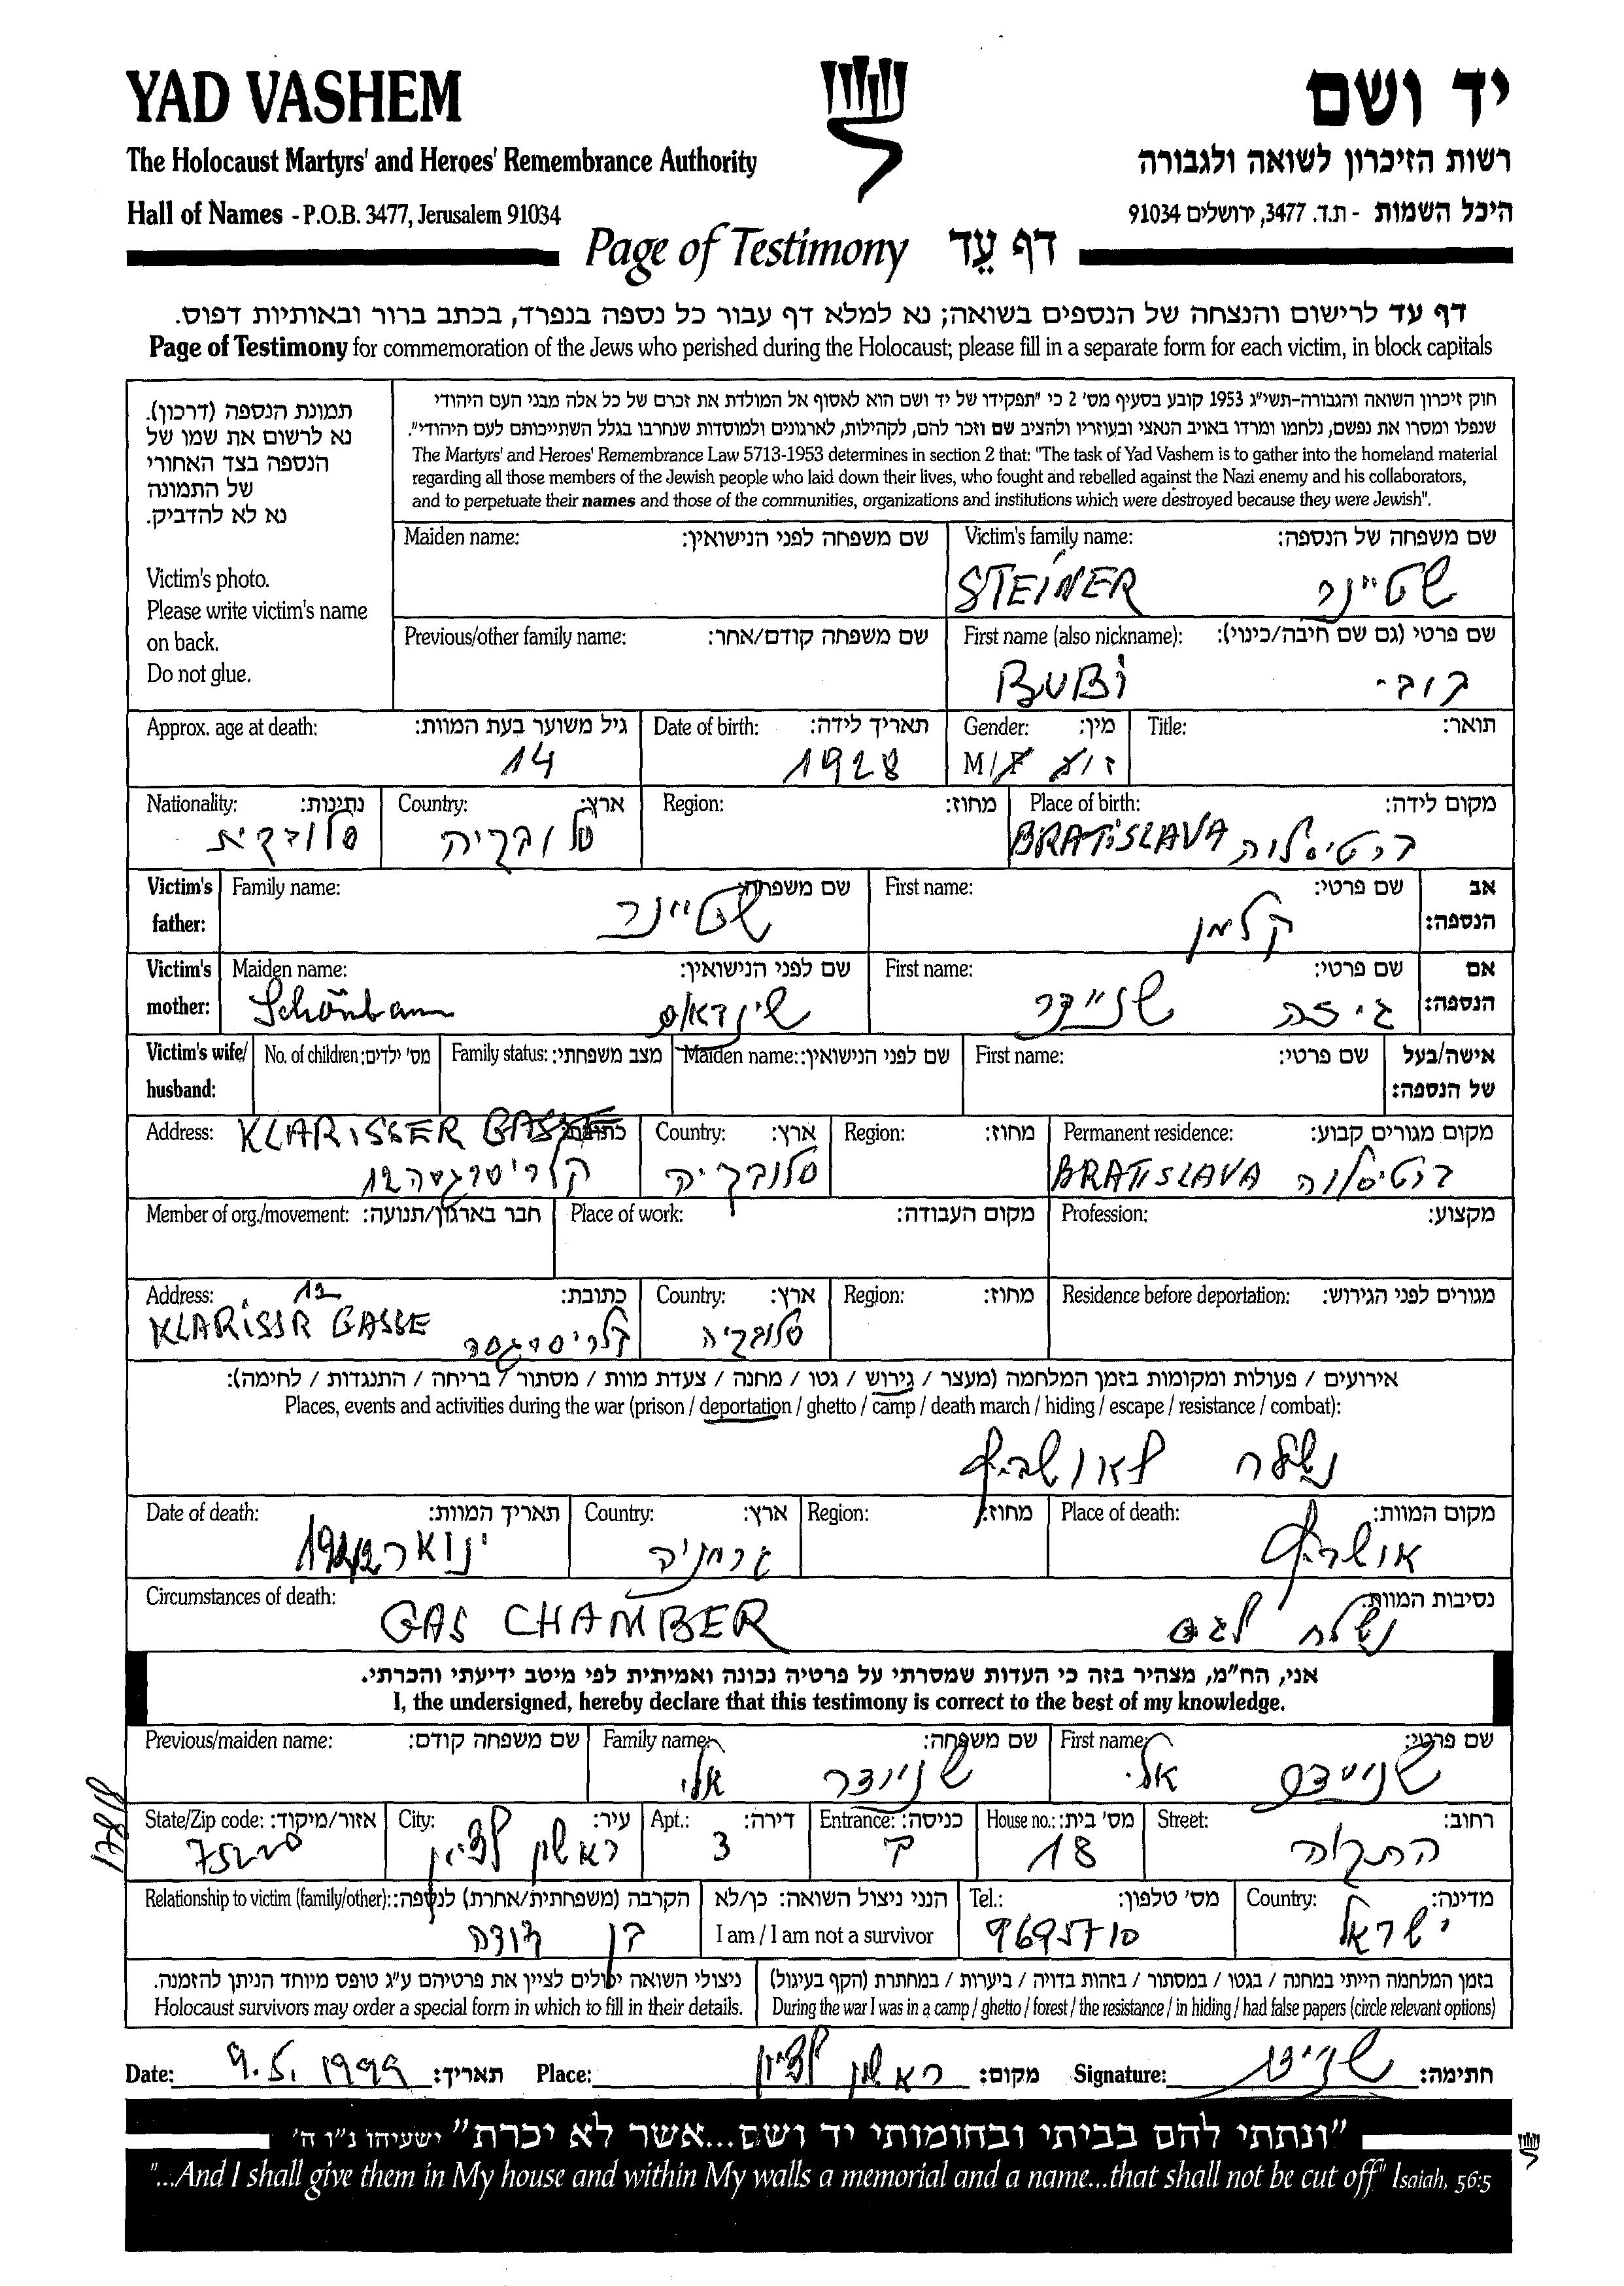 YAD VASHEM
יד ושם
The Holocaust Martyrs' and Heroes' Remembrance Authority
רשות הזיכרון לשואה ולגבורה
Hall of Names - P.O.B. 3477, Jerusalem 91034
היכל השמות - ת.ד. 3477, ירושלים 91034
Page of Testimony דף עֵד
דף עד לרישום והנצחה של הנספים בשואה; נא למלא דף עבור כל נספה בנפרד, בכתב ברור ובאותיות דפוס.
Page of Testimony for commemoration of the Jews who perished during the Holocaust; please fill in a separate form for each victim, in block capitals
תמונת הנספה (דרכון).
נא לרשום את שמו של
הנספה בצד האחורי
של התמונה
נא לא להדביק.
Victim's photo.
Please write victim's name
on back.
Do not glue.
חוק זיכרון השואה והגבורה-תשי"ג 1953 קובע בסעיף מס' 2 כי "תפקידו של יד ושם הוא לאסוף אל המולדת את זכרם של כל אלה מבני העם היהודי
שנפלו ומסרו את נפשם, נלחמו ומרדו באויב הנאצי ובעוזריו ולהציב שם וזכר להם, לקהילות, לארגונים ולמוסדות שנחרבו בגלל השתייכותם לעם היהודי".
The Martyrs' and Heroes' Remembrance Law 5713-1953 determines in section 2 that: "The task of Yad Vashem is to gather into the homeland material
regarding all those members of the Jewish people who laid down their lives, who fought and rebelled against the Nazi enemy and his collaborators,
and to perpetuate their names and those of the communities, organizations and institutions which were destroyed because they were Jewish".
Maiden name: שם משפחה לפני הנישואין:
Victim's family name: שם משפחה של הנספה:
STEINER שטיינר
Previous/other family name: שם משפחה קודם/אחר:
First name (also nickname): שם פרטי (גם שם חיבה/כינוי):
BUBI בובי
Approx. age at death: גיל משוער בעת המוות:
14
Date of birth: תאריך לידה:
1928
Gender: מין:
M/F ז/נ
Title: תואר:
Nationality: נתינות:
סלובקית
Country: ארץ:
סלובקיה
Region: מחוז:
Place of birth: מקום לידה:
BRATISLAVA ברטיסלוה
Victim's father: Family name: שם משפחה:
שטיינר
First name: שם פרטי:
קלמן
אב הנספה:
Victim's mother: Maiden name: שם לפני הנישואין:
First name: שם פרטי:
גיזה שניידר
אם הנספה:
Victim's wife/ husband:
No. of children: מס' ילדים:
Family status: מצב משפחתי:
Maiden name: שם לפני הנישואין:
First name: שם פרטי:
אישה/בעל של הנספה:
Address: KLARISSER GASSE כתובת:
קלריסרגסה 12
Country: ארץ:
סלובקיה
Region: מחוז:
Permanent residence: מקום מגורים קבוע:
BRATISLAVA ברטיסלוה
Member of org./movement: חבר בארגון/תנועה:
Place of work: מקום העבודה:
Profession: מקצוע:
Address: 12 כתובת:
KLARISSR GASSE קלריסרגסה
Country: ארץ:
סלובקיה
Region: מחוז:
Residence before deportation: מגורים לפני הגירוש:
אירועים / פעולות ומקומות בזמן המלחמה (מעצר / גירוש / גטו / מחנה / צעדת מוות / מסתור / בריחה / התנגדות / לחימה):
Places, events and activities during the war (prison / deportation / ghetto / camp / death march / hiding / escape / resistance / combat):
נשלח לאושביץ
Date of death: תאריך המוות:
ינואר 1942
Country: ארץ:
גרמניה
Region: מחוז:
Place of death: מקום המוות:
אושביץ
Circumstances of death: נסיבות המוות:
GAS CHAMBER נשלח לגז
אני, הח"מ, מצהיר בזה כי העדות שמסרתי על פרטיה נכונה ואמיתית לפי מיטב ידיעתי והכרתי.
I, the undersigned, hereby declare that this testimony is correct to the best of my knowledge.
Previous/maiden name: שם משפחה קודם:
Family name: שם משפחה:
שניידר אלי
First name: שם פרטי:
שניידר אלי
State/Zip code: אזור/מיקוד:
City: עיר:
ראשון לציון
Apt.: דירה:
3
Entrance: כניסה:
ב
House no.: מס' בית:
18
Street: רחוב:
התקוה
Relationship to victim (family/other): הקרבה (משפחתית/אחרת) לנספה:
בן דודה
הנני ניצול השואה: כן/לא
I am / I am not a survivor
Tel.: מס' טלפון:
9695710
Country: מדינה:
ישראל
ניצולי השואה יכולים לציין את פרטיהם ע"ג טופס מיוחד הניתן להזמנה.
Holocaust survivors may order a special form in which to fill in their details.
בזמן המלחמה הייתי במחנה / בגטו / במסתור / בזהות בדויה / ביערות / במחתרת (הקף בעיגול)
During the war I was in a camp / ghetto / forest / the resistance / in hiding / had false papers (circle relevant options)
Date: 9.5.1999 תאריך: Place: ראשון לציון מקום: Signature: שניידר חתימה:
"ונתתי להם בביתי ובחומותי יד ושם...אשר לא יכרת" ישעיהו נ"ו ה'
"...And I shall give them in My house and within My walls a memorial and a name...that shall not be cut off" Isaiah, 56:5